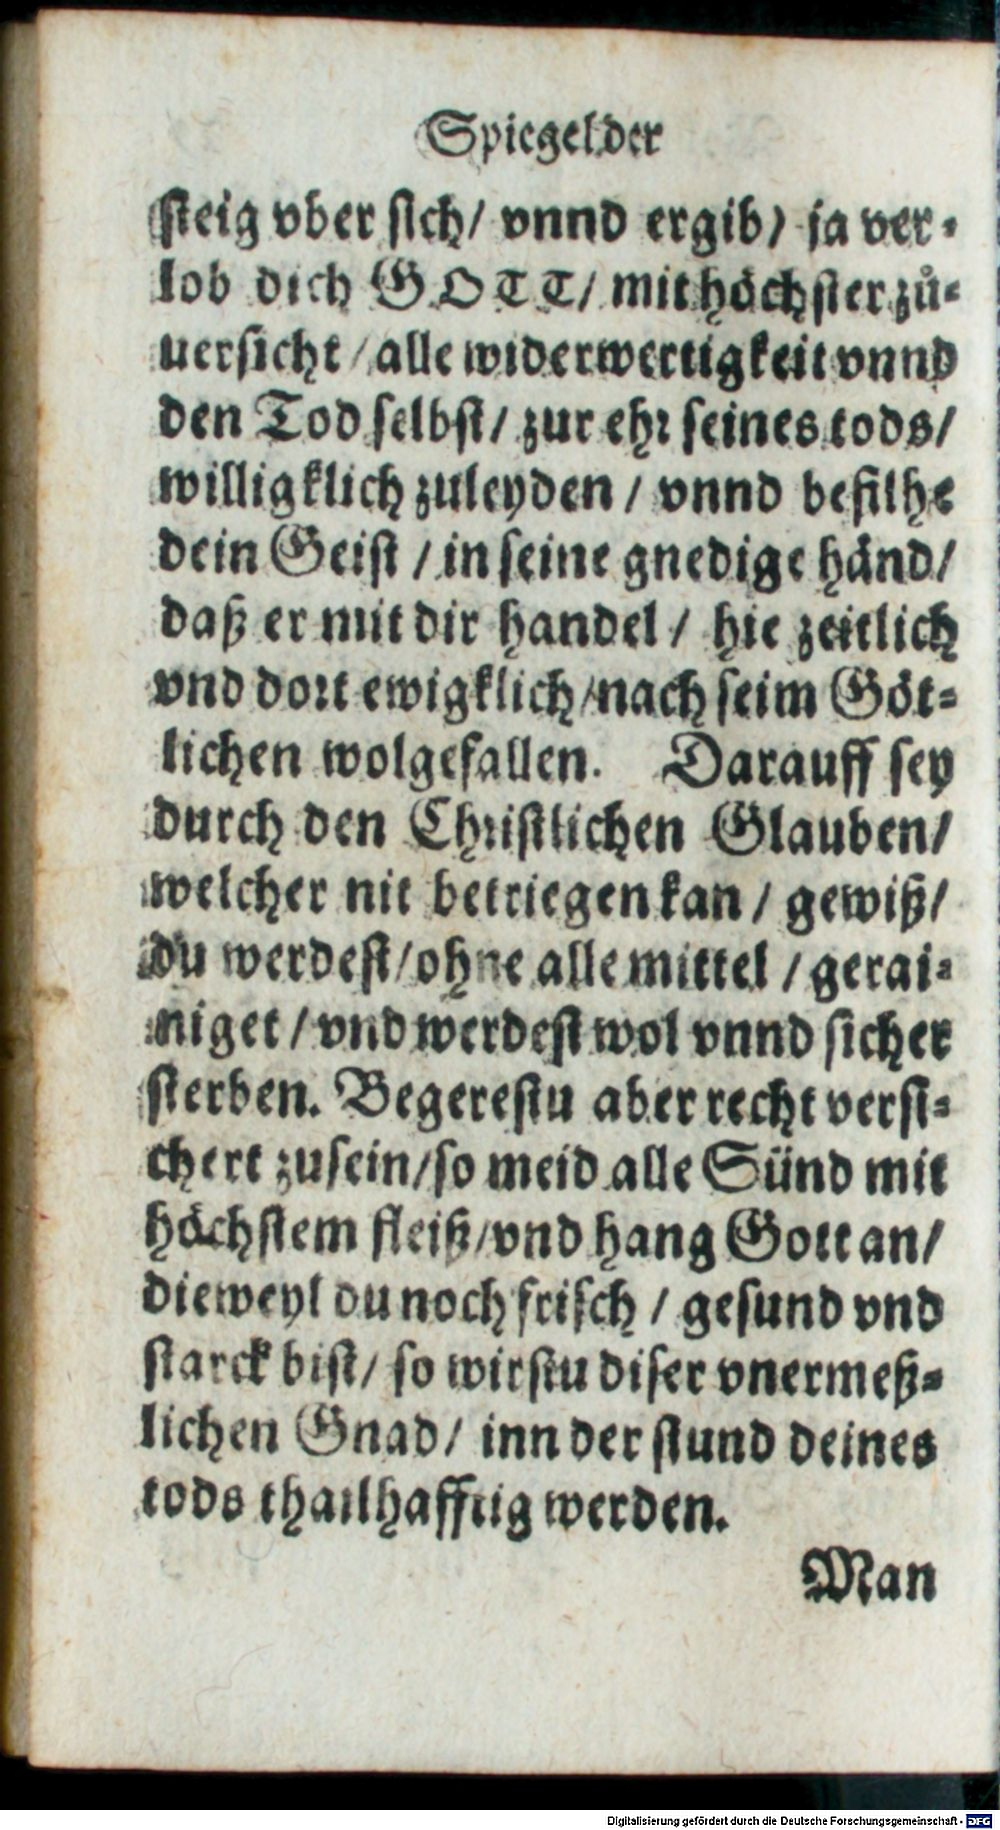 Spiegel der
steig vber sich/ vnnd ergib/ ja ver-
lob dich GOTT/ mit höchster zů-
uersicht/ alle widerwertigkeit vnnd
den Tod selbst/ zur ehr seines tods/
willigklich zuleyden/ vnnd befilhe
dein Geist/ in seine gnedige händ/
daß er mit dir handel/ hie zeitlich
vnd dort ewigklich/ nach seim Göt-
lichen wolgefallen. Darauff sey
durch den Christlichen Glauben/
welcher nit betriegen kan/ gewiß/
du werdest/ ohne alle mittel/ gerai-
niget/ vnd werdest wol vnnd sicher
sterben. Begerestu aber recht versi-
chert zusein/ so meid alle Sünd mit
höchstem fleiß/ vnd hang Gott an/
dieweyl du noch frisch/ gesund vnd
starck bist/ so wirstu diser vnermeß-
lichen Gnad/ inn der stund deines
tods thailhafftig werden.
Man
Digitalisierung gefördert durch die Deutsche Forschungsgemeinschaft - DFG